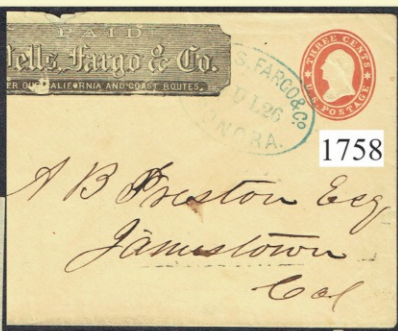 PAID
Wells, Fargo & Co.
OVER OUR CALIFORNIA AND COAST ROUTES.
S, FARGO & Co
26
NORA.
THREE CENTS
U.S. POSTAGE
1758
A B Preston Esq
Jamestown
Cal